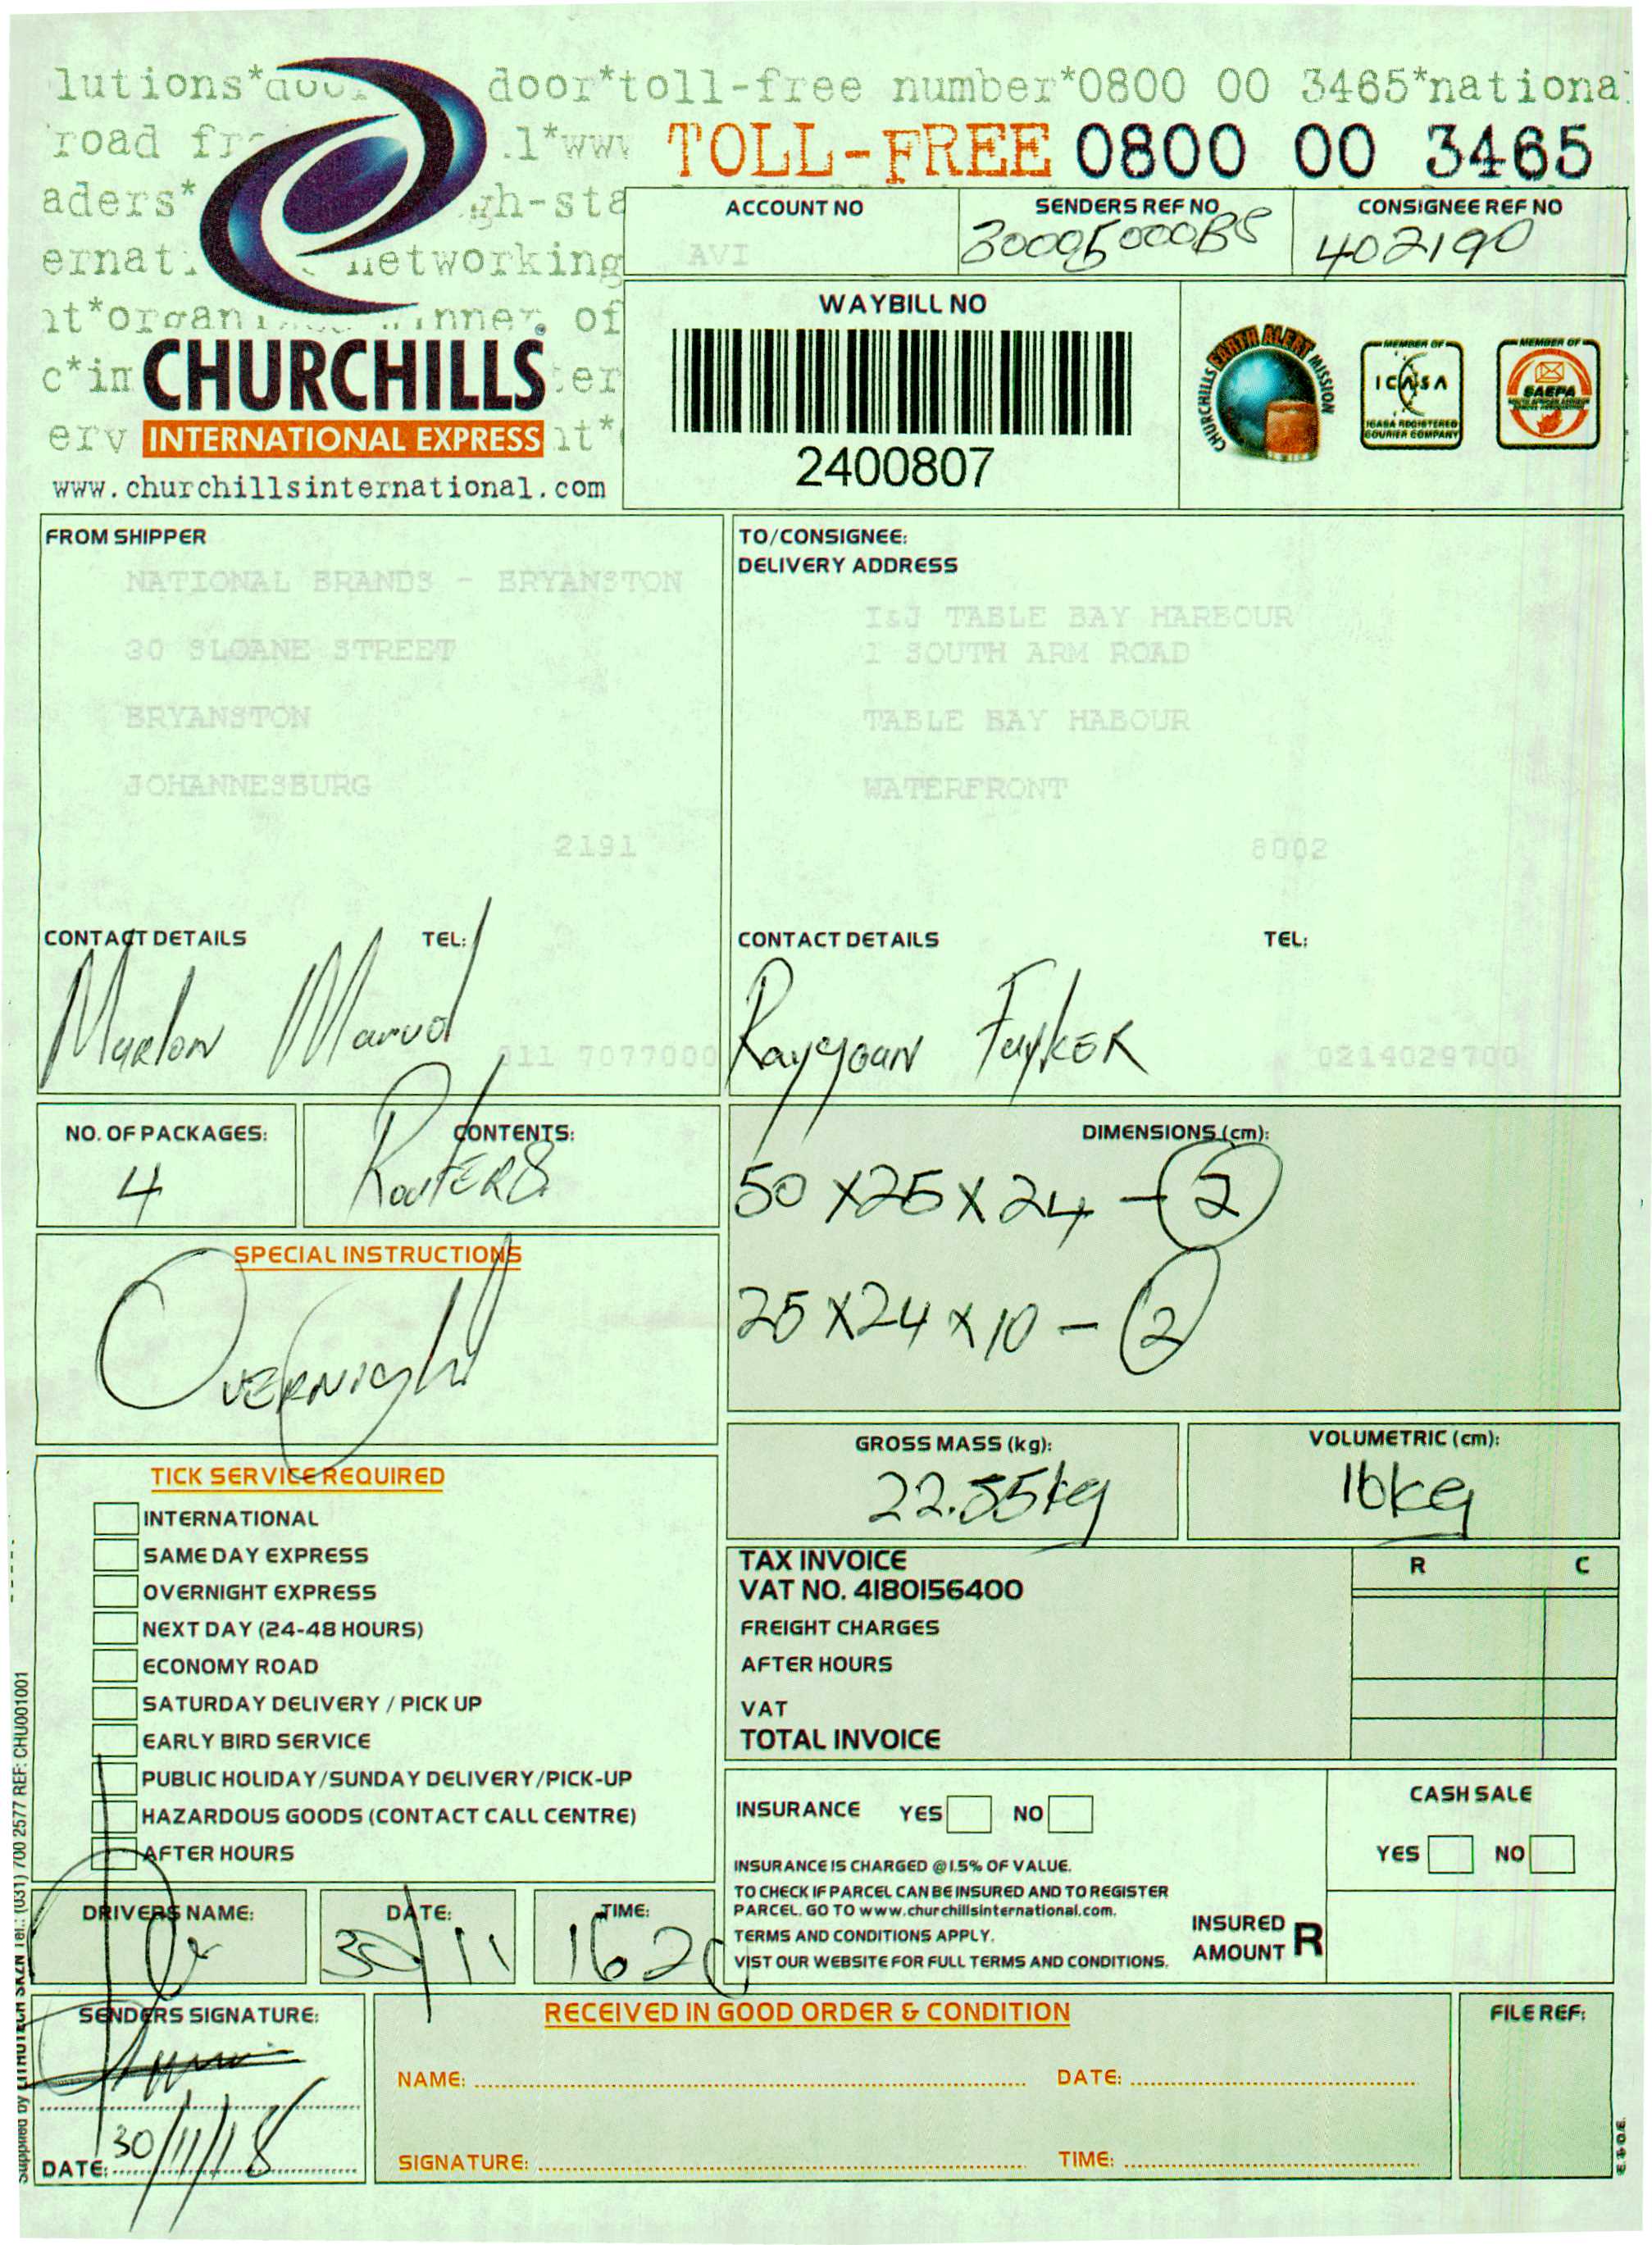 lutions*door door*toll-free number*0800 00 3465*nationa
road fr .1*www
TOLL-FREE 0800 00 3465
aders* gh-sta
ernat networking
nt*organi winner of
c*in ter
erv nt*
CHURCHILLS
INTERNATIONAL EXPRESS
www.churchillsinternational.com
ACCOUNT NO
AVI
SENDERS REF NO
CONSIGNEE REF NO
402190
WAYBILL NO
2400807
CHURCHILLS EARTH ALERT MISSION
MEMBER OF
ICASA
ICASA REGISTERED
COURIER COMPANY
MEMBER OF
SAEPA
FROM SHIPPER
NATIONAL BRANDS - BRYANSTON
30 SLOANE STREET
BRYANSTON
JOHANNESBURG
2191
CONTACT DETAILS TEL:
Marlon
011 7077000
TO/CONSIGNEE:
DELIVERY ADDRESS
I&J TABLE BAY HARBOUR
1 SOUTH ARM ROAD
TABLE BAY HABOUR
WATERFRONT
8002
CONTACT DETAILS TEL:
0214029700
NO. OF PACKAGES:
4
CONTENTS:
RoutERS
DIMENSIONS (cm):
50 x 25 x 24 - 2
25 x 24 x 10 - 2
SPECIAL INSTRUCTIONS
OVERNight
GROSS MASS (kg):
22.55kg
VOLUMETRIC (cm):
16kg
TICK SERVICE REQUIRED
INTERNATIONAL
SAME DAY EXPRESS
OVERNIGHT EXPRESS
NEXT DAY (24-48 HOURS)
ECONOMY ROAD
SATURDAY DELIVERY / PICK UP
EARLY BIRD SERVICE
PUBLIC HOLIDAY/SUNDAY DELIVERY/PICK-UP
HAZARDOUS GOODS (CONTACT CALL CENTRE)
AFTER HOURS
TAX INVOICE R C
VAT NO. 4180156400
FREIGHT CHARGES
AFTER HOURS
VAT
TOTAL INVOICE
INSURANCE YES NO
INSURANCE IS CHARGED @1.5% OF VALUE.
TO CHECK IF PARCEL CAN BE INSURED AND TO REGISTER
PARCEL. GO TO www.churchillsinternational.com.
TERMS AND CONDITIONS APPLY.
VIST OUR WEBSITE FOR FULL TERMS AND CONDITIONS.
CASH SALE
YES NO
INSURED
AMOUNT R
DRIVERS NAME:
DATE:
30/11
TIME:
1620
SENDERS SIGNATURE:
DATE: 30/11/18
RECEIVED IN GOOD ORDER & CONDITION
NAME: DATE:
SIGNATURE: TIME:
FILE REF:
E.&O.E.
Supplied by LITHOTECH SKZN Tel.: (031) 700 2577 REF: CHU001001